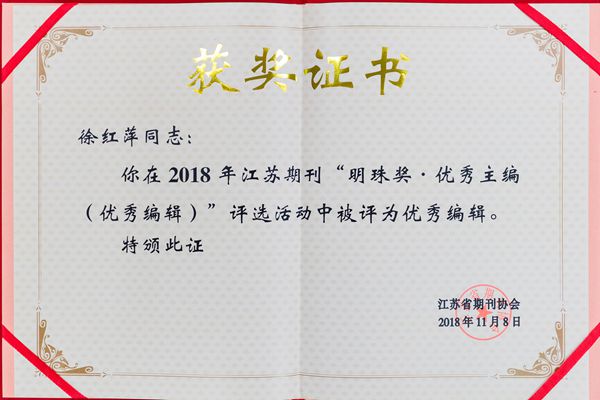 获奖证书
徐红萍同志：
你在2018年江苏期刊“明珠奖·优秀主编
（优秀编辑）”评选活动中被评为优秀编辑。
特颁此证
江苏省期刊协会
2018年11月8日